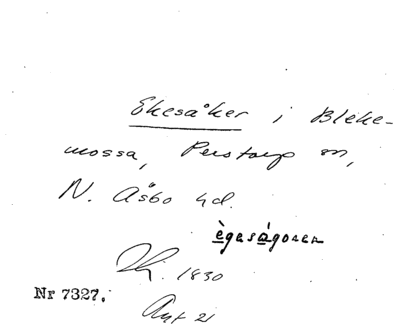 Ekesåker i Bleke-
mossa, Perstorp sn,
N. Åsbo hd.
ègəsågoren
1830
Nr 7327.